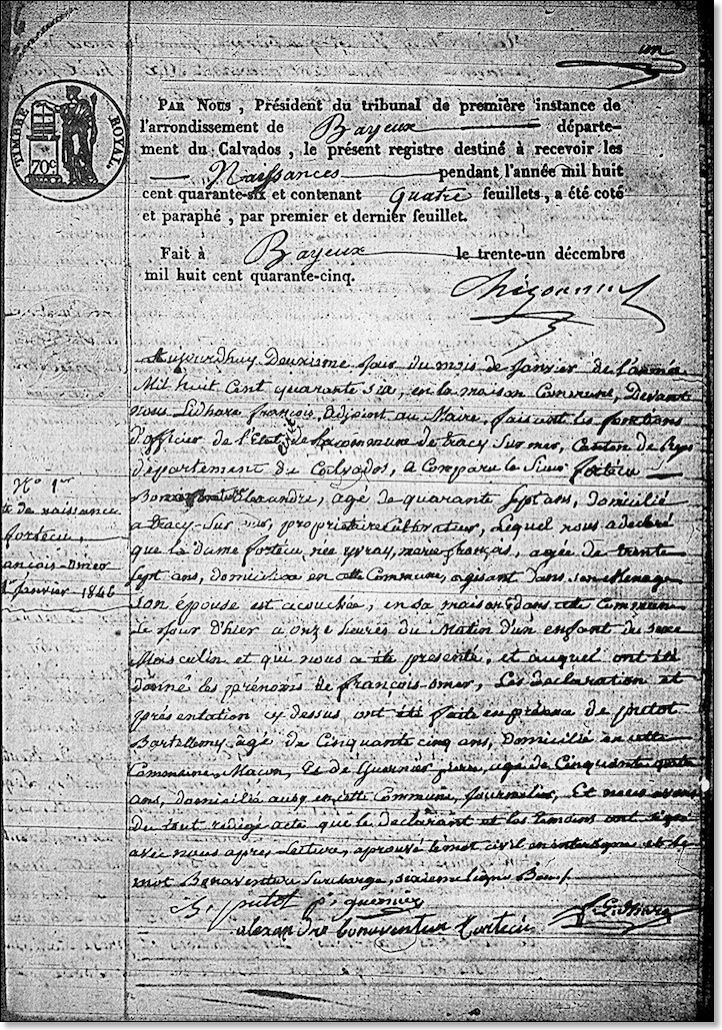 un
TIMBRE ROYAL
70c
PAR NOUS, Président du tribunal de première instance de
l'arrondissement de Bayeux départe-
ment du Calvados, le présent registre destiné à recevoir les
Naissances pendant l'année mil huit
cent quarante-six et contenant quatre feuillets, a été coté
et paraphé, par premier et dernier feuillet.
Fait à Bayeux le trente-un décembre
mil huit cent quarante-cinq.
Aujourdhuy Deuxieme jour du mois de Janvier de l'année
Mil huit Cent quarante six, en la maison Commune, Devant
nous Lidhare françois, adjoint au Maire, faisant les fonctions
d'officier de l'Etat civil de la commune de tracy sur mer, Canton de Ryes
département de Calvados, a Comparu le Sieur fortecu
Bonaventure Alexandre, agé de quarante Sept ans, domicilié
a tracy-Sur mer, propriétaire Cultivateur, Lequel nous a declaré
que la dame fortecu, née yvray, marie françois, agée de trente
Sept ans, domiciliée en cette Commune, agisant dans son Menage
son épouse est acouchée, en sa maison dans cette Commune
Le jour D'hier a onze heures du Matin d'un enfant du sexe
Masculin et qui nous a été presenté, et auquel ont été
donné les prénoms de françois-omer, Les declaration et
présentation cy dessus ont été faite en présence de putot
Bartellemy agé de Cinquante cinq ans, Domicilié en cette
Commune, Macon, Et de Guernier pierre, agé de Cinquante quatre
ans, domicilié ausy en cette Commune, Journalier, Et nous avons
du tout redigé acte que le declarant et les temoins ont signé
avec nous apres Lecture, aprouvé le mot civil en interligne et le
mot Bonaventure Surcharge, sixieme ligne Bon
No 1er
te de naissance
fortecu,
rançois-omer
1er janvier 1846
B. putot p. guernier
alexandre bonaventure fortecu